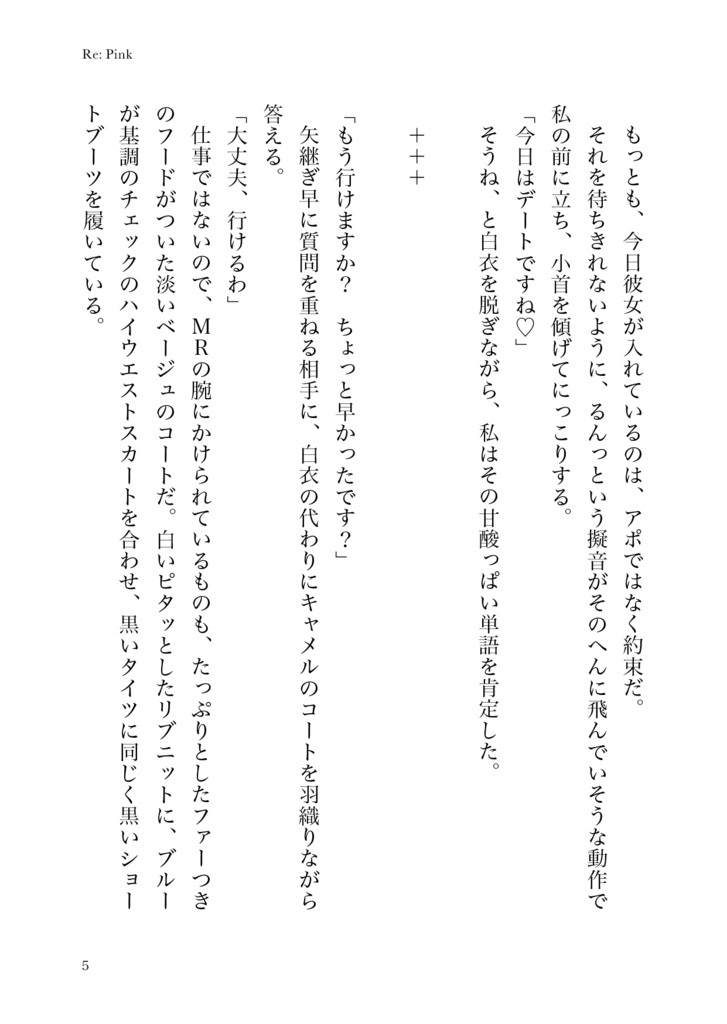 Re: Pink
　もっとも、今日彼女が入れているのは、アポではなく約束だ。
　それを待ちきれないように、るんっという擬音がそのへんに飛んでいそうな動作で
私の前に立ち、小首を傾げてにっこりする。
「今日はデートですね♡」
　そうね、と白衣を脱ぎながら、私はその甘酸っぱい単語を肯定した。
＋＋＋
「もう行けますか？　ちょっと早かったです？」
　矢継ぎ早に質問を重ねる相手に、白衣の代わりにキャメルのコートを羽織りながら
答える。
「大丈夫、行けるわ」
　仕事ではないので、ＭＲの腕にかけられているものも、たっぷりとしたファーつき
のフードがついた淡いベージュのコートだ。白いピタッとしたリブニットに、ブルー
が基調のチェックのハイウエストスカートを合わせ、黒いタイツに同じく黒いショー
トブーツを履いている。
5